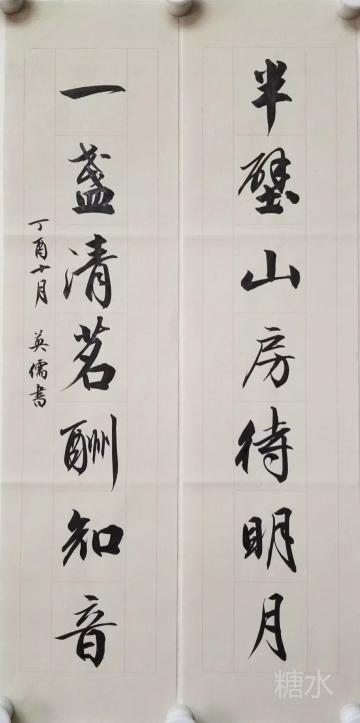 半壁山房待明月
一盏清茗酬知音
丁酉十月 英儒书
糖水